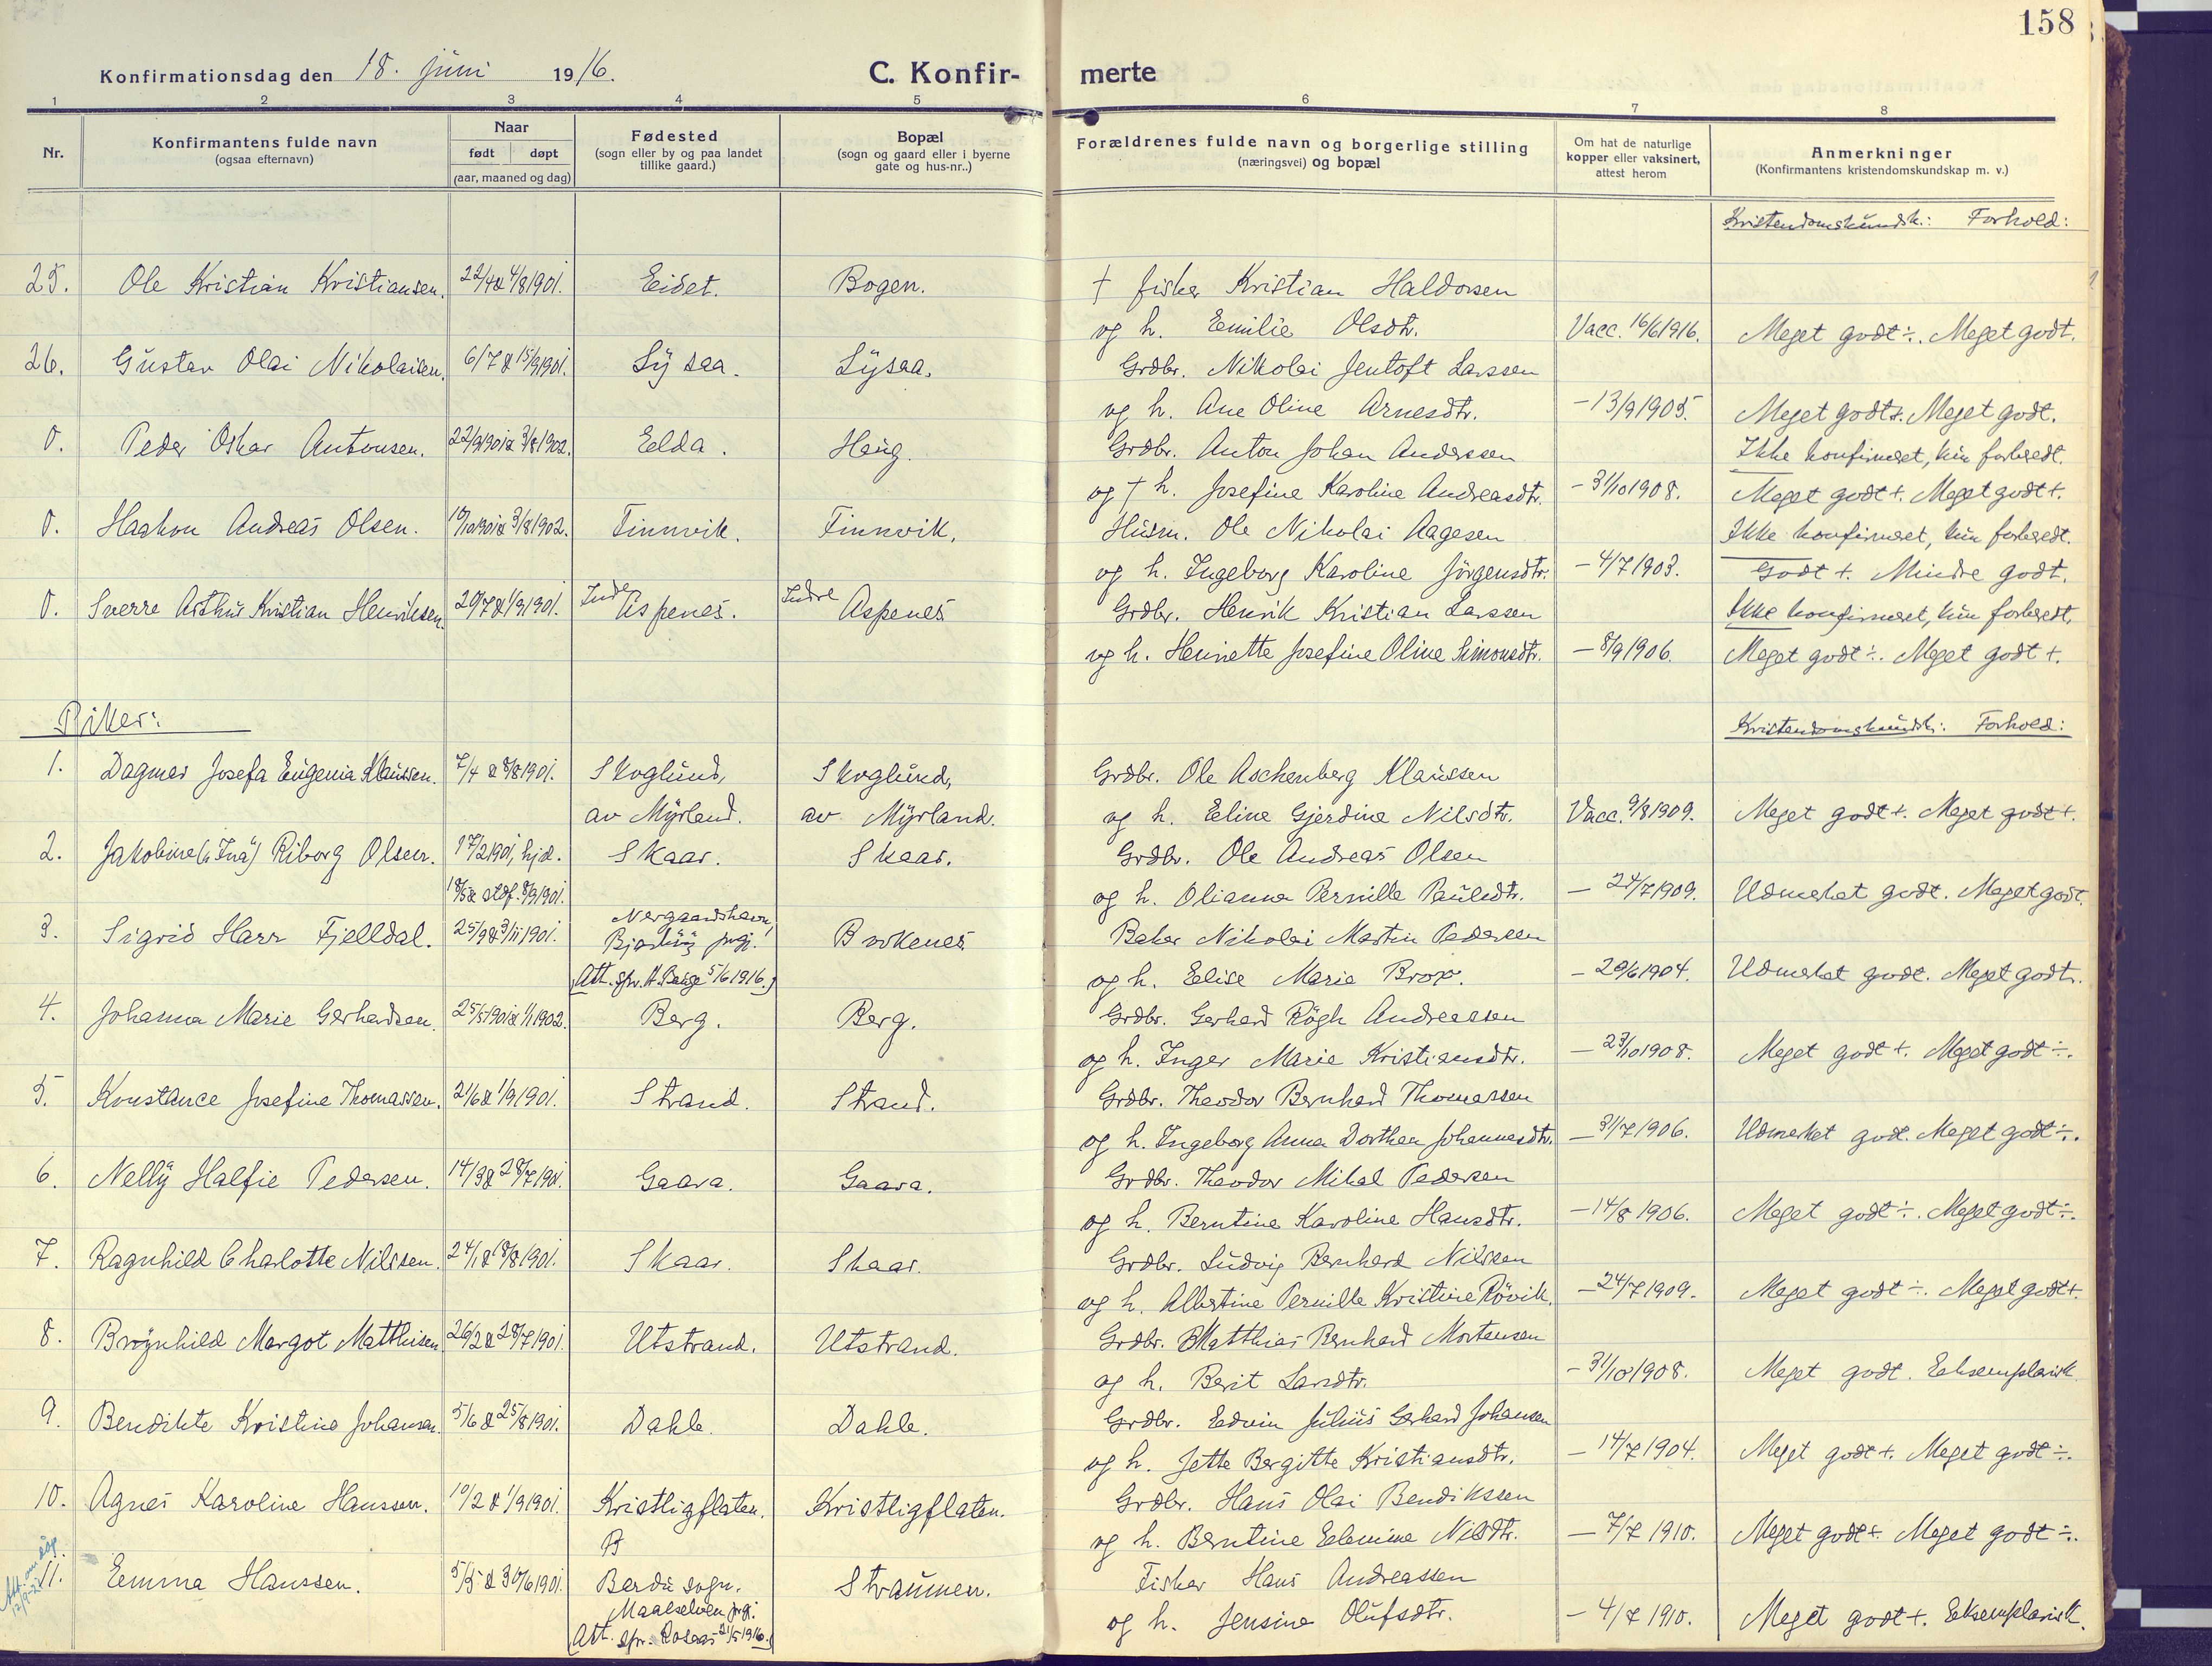 158
Konfirmationsdag den 18. juni 1916.
C. Konfirmerte
1 2 3 4 5 6 7 8
Nr.
Konfirmantens fulde navn
(ogsaa efternavn)
Naar
født døpt
(aar, maaned og dag)
Fødested
(sogn eller by og paa landet
tillike gaard.)
Bopæl
(sogn og gaard eller i byerne
gate og hus-nr..)
Forældrenes fulde navn og borgerlige stilling
(næringsvei) og bopæl
Om hat de naturlige
kopper eller vaksinert,
attest herom
Anmerkninger
(Konfirmantens kristendomskundskap m. v.)
Kristendomskundsk.: Forhold:
25. Ole Kristian Kristiansen. 22/4 & 4/8 1901. Eidet. Bogen. † fisker Kristian Haldorsen
og h. Emilie Olsdtr. Vacc. 16/6 1916. Meget godt ÷. Meget godt.
26. Gustav Olai Nikolaisen. 6/7 & 15/9 1901. Lysaa. Lysaa. Grdbr. Nikolai Jentoft Larssen
og h. Ane Oline Arnesdtr. - 13/9 1905. Meget godt +. Meget godt.
0. Peder Oskar Antonsen. 22/9 1901 & 3/8 1902. Elda. Haug. Grdbr. Anton Johan Anderssen Ikke konfirmeret, kun forberedt.
og † h. Josefine Karoline Andreasdtr. - 31/10 1908. Meget godt +. Meget godt +.
0. Haakon Andreas Olsen. 19/10 1901 & 3/8 1902. Finnvik. Finnvik. Husm. Ole Nikolai Aagesen Ikke konfirmeret, kun forberedt.
og h. Ingeborg Karoline Jörgensdtr. - 4/7 1903. Godt +. Mindre godt.
0. Sverre Arthur Kristian Henriksen. 20/7 & 1/9 1901. Indre Aspenes. Indre Aspenes Grdbr. Henrik Kristian Larssen Ikke konfirmeret, kun forberedt.
og h. Henriette Josefine Oline Simonsdtr. - 8/9 1906. Meget godt ÷. Meget godt +.
Piker:
Kristendomskundsk.: Forhold:
1. Dagmar Josefa Eugenia Klaussen. 7/4 & 8/8 1901. Skoglund, Skoglund, Grdbr. Ole Aschenberg Klaussen
av Myrland. av Myrland. og h. Eline Gjerdine Nilsdtr. Vacc. 9/8 1909. Meget godt +. Meget godt +.
2. Jakobine ("Ina") Riborg Olsen. 17/2 1901, hjd. Skaar. Skaar. Grdbr. Ole Andreas Olsen
18/5 & stdf. 8/9 1901. og h. Olianna Pernille Paulsdtr. - 24/7 1909. Udmerket godt. Meget godt.
3. Sigrid Harr Fjelldal. 25/9 & 3/11 1901. Nergaardshavn, Bjarköy prgj. Brokenes Baker Nikolai Martin Pedersen
(Att. spr. H. Berge 5/6 1916.) og h. Elise Marie Brox. - 20/6 1904. Udmerket godt. Meget godt.
4. Johanna Marie Gerhardsen. 25/5 1901 & 1/1 1902. Berg. Berg. Grdbr. Gerhard Rögh Andreassen
og h. Inger Marie Kristiansdtr. - 23/10 1908. Meget godt +. Meget godt ÷.
5. Konstance Josefine Thomassen. 21/6 & 1/9 1901. Strand. Strand. Grdbr. Theodor Bernhard Thomassen
og h. Ingeborg Anna Dorthea Johannesdtr. - 31/7 1906. Udmerket godt. Meget godt ÷.
6. Nelly Halfie Pedersen. 14/3 & 28/7 1901. Gaara. Gaara. Grdbr. Theodor Mikal Pedersen
og h. Berntine Karoline Hansdtr. - 14/8 1906. Meget godt ÷. Meget godt ÷.
7. Ragnhild Charlotte Nilssen. 24/1 & 18/8 1901. Skaar. Skaar. Grdbr. Ludvig Bernhard Nilssen
og h. Albertine Pernille Kristine Rövik. - 24/7 1909. Meget godt ÷. Meget godt +.
8. Bröynhild Margot Matthisen. 26/2 & 28/7 1901. Utstrand. Utstrand. Grdbr. Matthias Bernhard Mortensen
og h. Berit Larsdtr. - 31/10 1908. Meget godt. Eksemplarisk.
9. Bendikte Kristine Johansen. 5/6 & 25/8 1901. Dahle. Dahle. Grdbr. Edvin Julius Gerhard Johansen
og h. Jette Bergitte Kristiansdtr. - 14/7 1904. Meget godt +. Meget godt ÷.
10. Agnes Karoline Hanssen. 10/2 & 1/9 1901. Kristligflaten. Kristligflaten. Grdbr. Hans Olai Bendikssen
og h. Berntine Elemine Nilsdtr. - 7/7 1910. Meget godt +. Meget godt ÷.
Att. om dåp.
12/9-22
11. Emma Hanssen. 5/5 & 30/6 1901. Bardu sogn. Straumen. Fisker Hans Andreassen
Maalselven prgj.
(Att. spr. Rosaas 21/5 1916.) og h. Jensine Olufsdtr. - 4/7 1910. Meget godt +. Eksemplarisk.